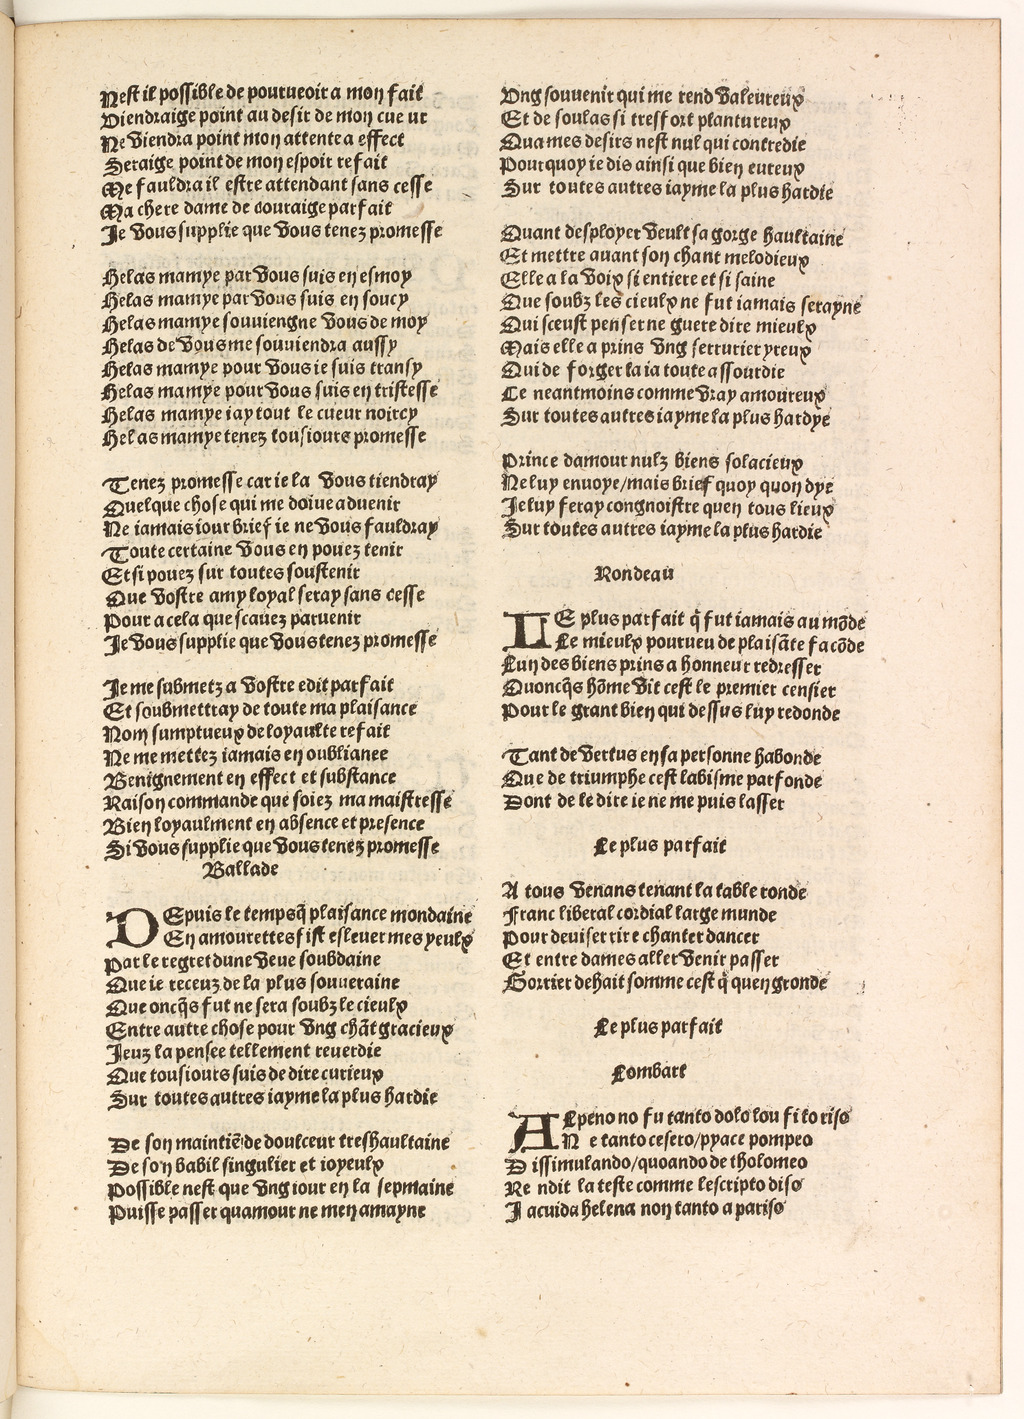 Nest il possible de pourueoir a mon fait
Viendraige point au desir de mon cueur
Ne viendra point mon attente a effect
Seraige point de mon espoir refait
Me fauldra il estre attendant sans cesse
Ma chere dame de couraige parfait
Je vous supplie que vous tenez promesse
Helas mamye par vous suis en esmoy
Helas mamye par vous suis en soucy
Helas mamye souuiengne vous de moy
Helas de vous me souuiendra aussy
Helas mamye pour vous ie suis transy
Helas mamye pour vous suis en tristesse
Helas mamye iay tout le cueur noircy
Helas mamye tenez tousiours promesse
Tenez promesse car ie la vous tiendray
Quelque chose qui me doiue aduenir
Ne iamais iour brief ie ne vous fauldray
Toute certaine vous en pouez tenir
Et si pouez sur toutes soustenir
Que vostre amy loyal seray sans cesse
Pour a cela que scauez paruenir
Je vous supplie que vous tenez promesse
Je me submetz a vostre edit parfait
Et soubmettray de toute ma plaisance
Nom sumptueux de loyaulte refait
Ne me mettez iamais en oubliance
Benignement en effect et substance
Raison commande que soiez ma maistresse
Bien loyaulment en absence et presence
Si vous supplie que vous tenez promesse
Ballade
DEpuis le temps q̄ plaisance mondaine
En amourettes fist esleuer mes yeulx
Par le regret dune veue soubdaine
Que ie receuz de la plus souueraine
Que oncq̄s fut ne sera soubz le cieulx
Entre autre chose pour vng chāt gracieux
Jeuz la pensee tellement reuerdie
Que tousiours suis de dire curieux
Sur toutes autres iayme la plus hardie
De son maintiē de doulceur treshaultaine
De son babil singulier et ioyeulx
Possible nest que vng iour en la sepmaine
Puisse passer quamour ne men amayne
Vng souuenir qui me rend valeureux
Et de soulas si tresfort plantureux
Qua mes desirs nest nul qui contredie
Pourquoy ie dis ainsi que bien eureux
Sur toutes autres iayme la plus hardie
Quant desployer veult sa gorge haultaine
Et mettre auant son chant melodieux
Elle a la voix si entiere et si saine
Que soubz les cieulx ne fut iamais serayne
Qui sceust penser ne guere dire mieulx
Mais elle a prins vng serrurier yreux
Qui de forger la ia toute assourdie
Ce neantmoins comme vray amoureux
Sur toutes autres iayme la plus hardye
Prince damour nulz biens solacieux
Ne luy enuoye/mais brief quoy quon dye
Je luy feray congnoistre quen tous lieux
Sur toutes autres iayme la plus hardie
Rondeau
LE plus parfait q̄ fut iamais au mōde
Le mieulx pourueu de plaisāte facōde
Lun des biens prins a honneur redresser
Quoncq̄s hōme vit cest le premier censier
Pour le grant bien qui dessus luy redonde
Tant de vertus en sa personne habonde
Que de triumphe cest labisme parfonde
Dont de le dire ie ne me puis lasser
Le plus parfait
A tous venans tenant la table ronde
Franc liberal cordial large munde
Pour deuiser rire chanter dancer
Et entre dames aller venir passer
Gorrier dehait somme cest q̄ quen gronde
Le plus parfait
Lombart
ALpeno no fu tanto dolo lou fito riso
N e tanto cesero/pyace pompeo
D issimulando/quoando de tholomeo
Re ndit la teste comme lescripto diso
J acuida helena non tanto a pariso